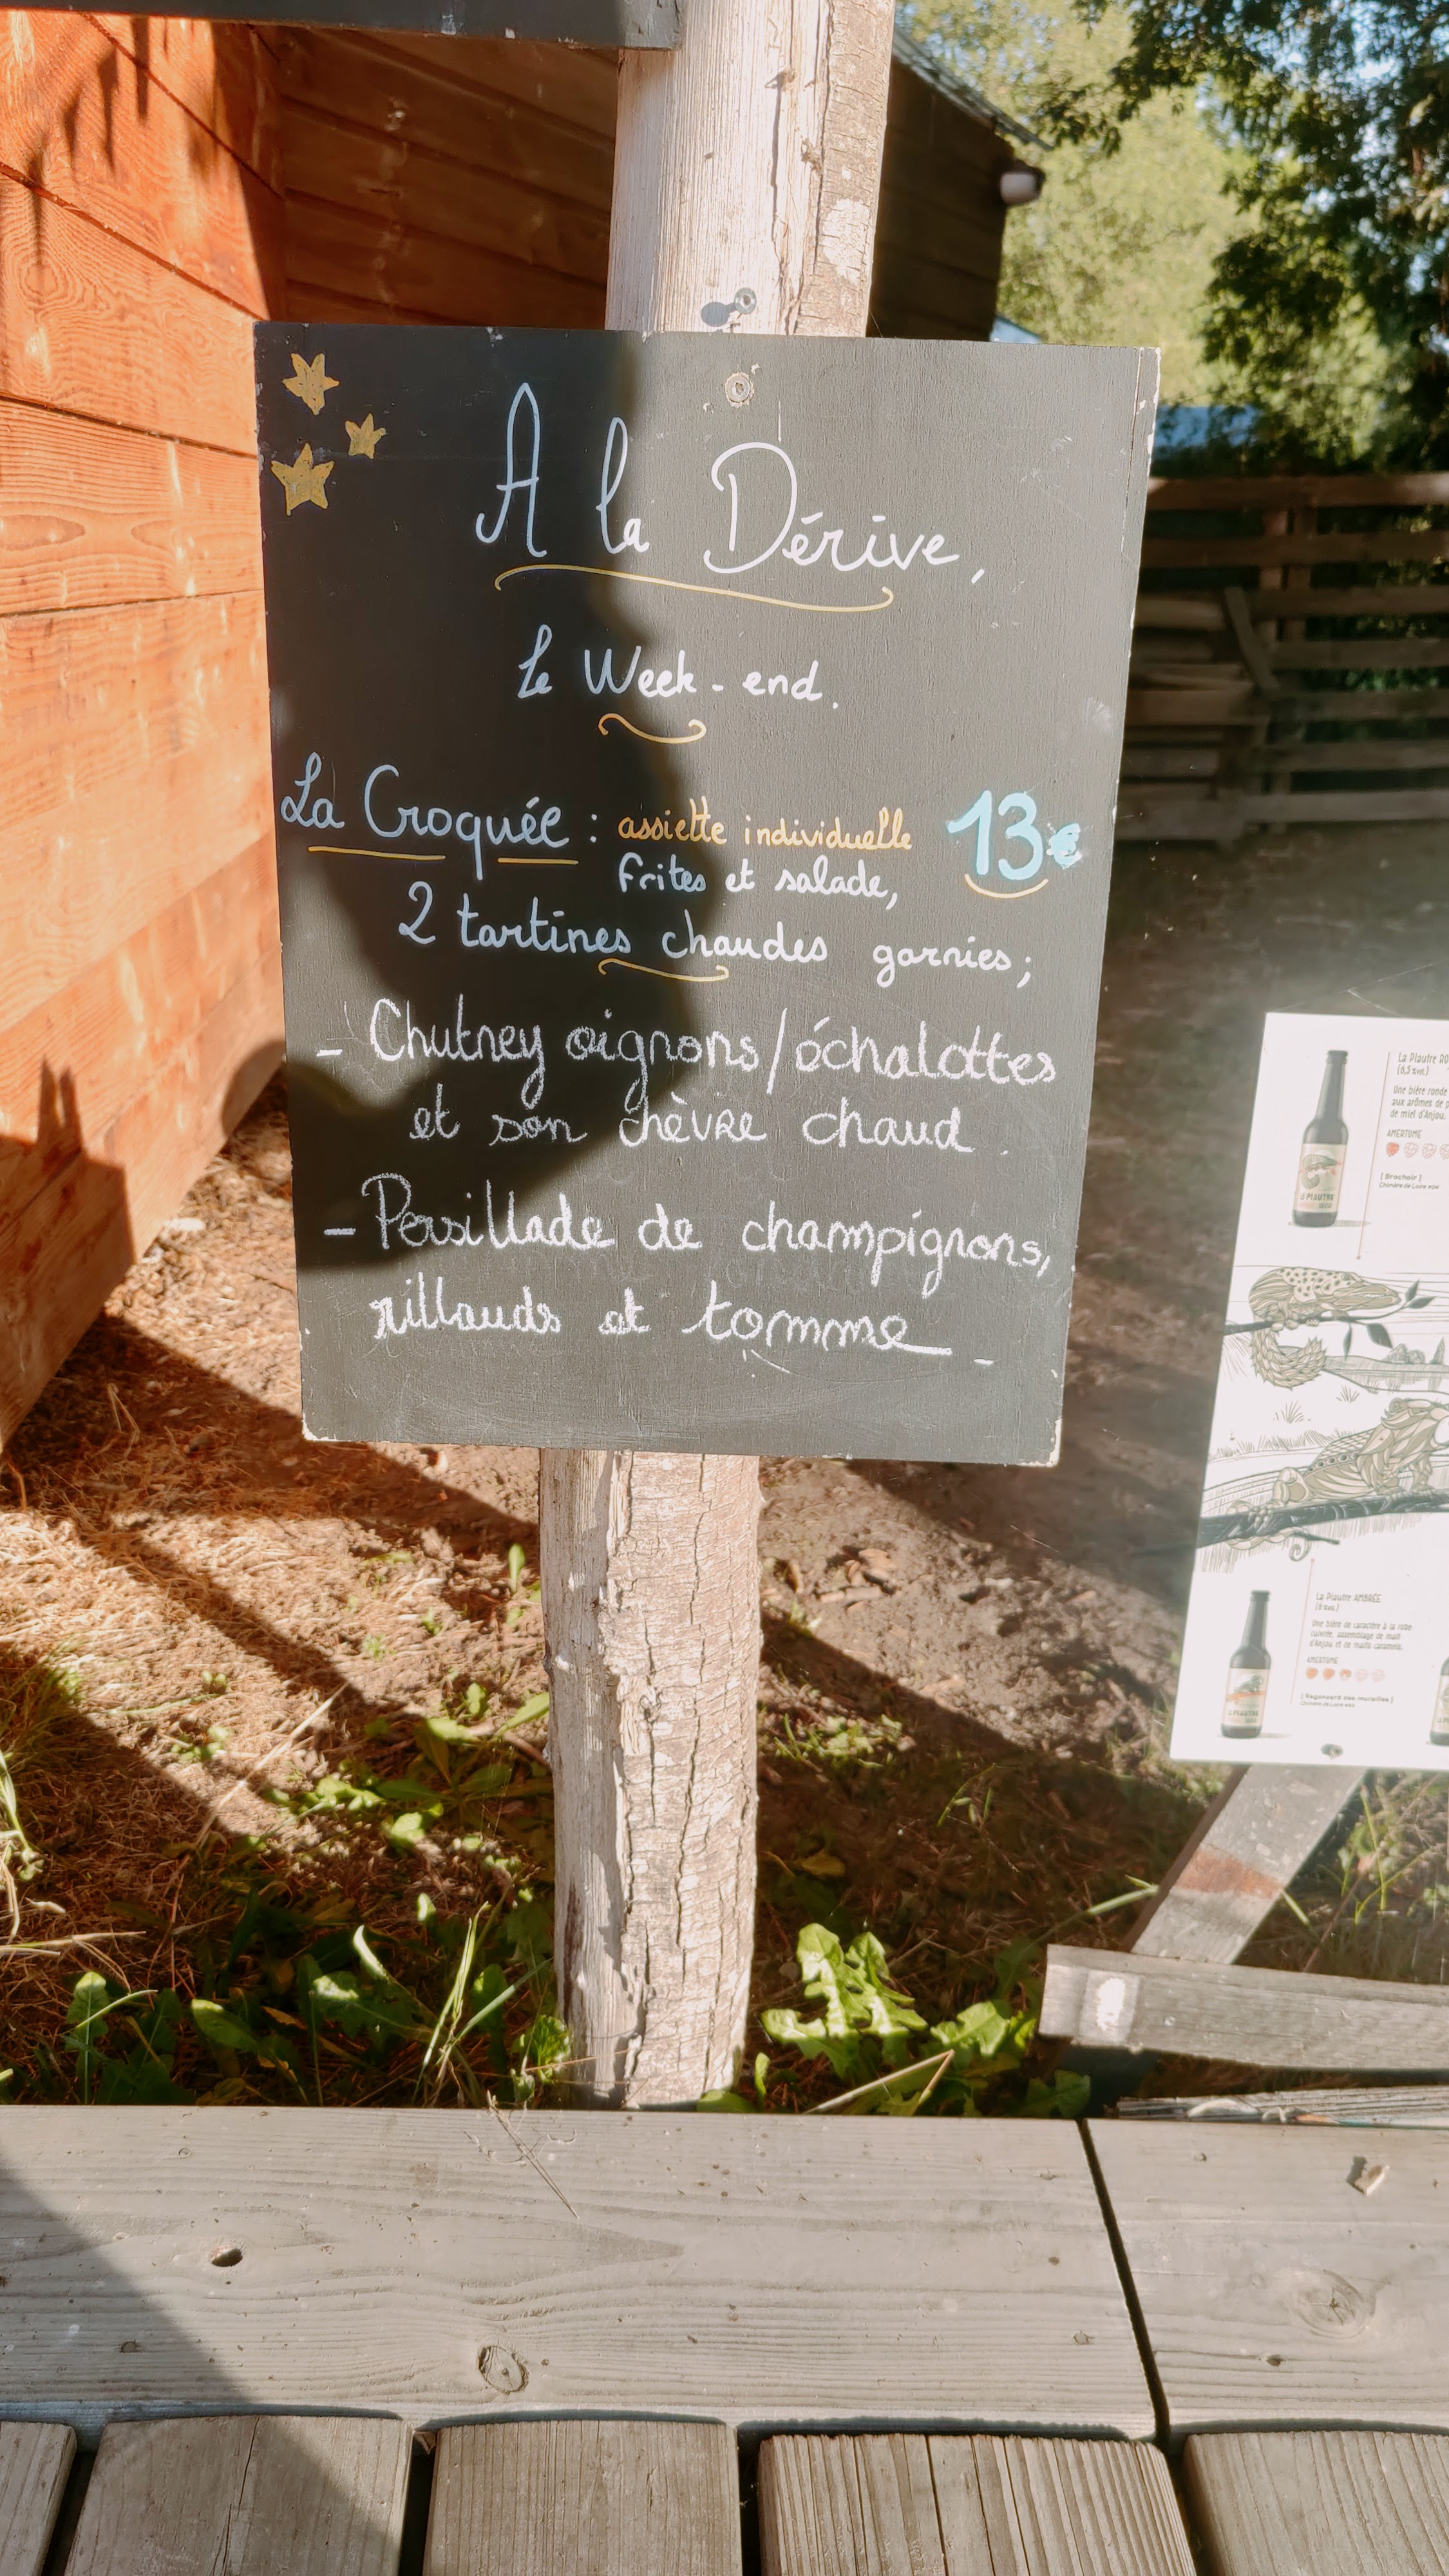 A la Dérive,
Le Week-end.
La Croquée : assiette individuelle 13€
frites et salade,
2 tartines chaudes garnies;
- Chutney oignons/échalottes
et son chèvre chaud.
- Persillade de champignons,
rillauds et tomme -
La Piautre
(6,5 %vol.)
Une bière ronde
aux arômes de
de miel d'Anjou.
AMERTUME
[ Brochoir ]
Chimère de Loire
LA PIAUTRE
La Piautre AMBRÉE
Une bière de caractère à la robe
cuivrée, assemblage de malt
d'Anjou et de malts caramels.
AMERTUME
[ Regonzard des murailles ]
Chimère de Loire
LA PIAUTRE